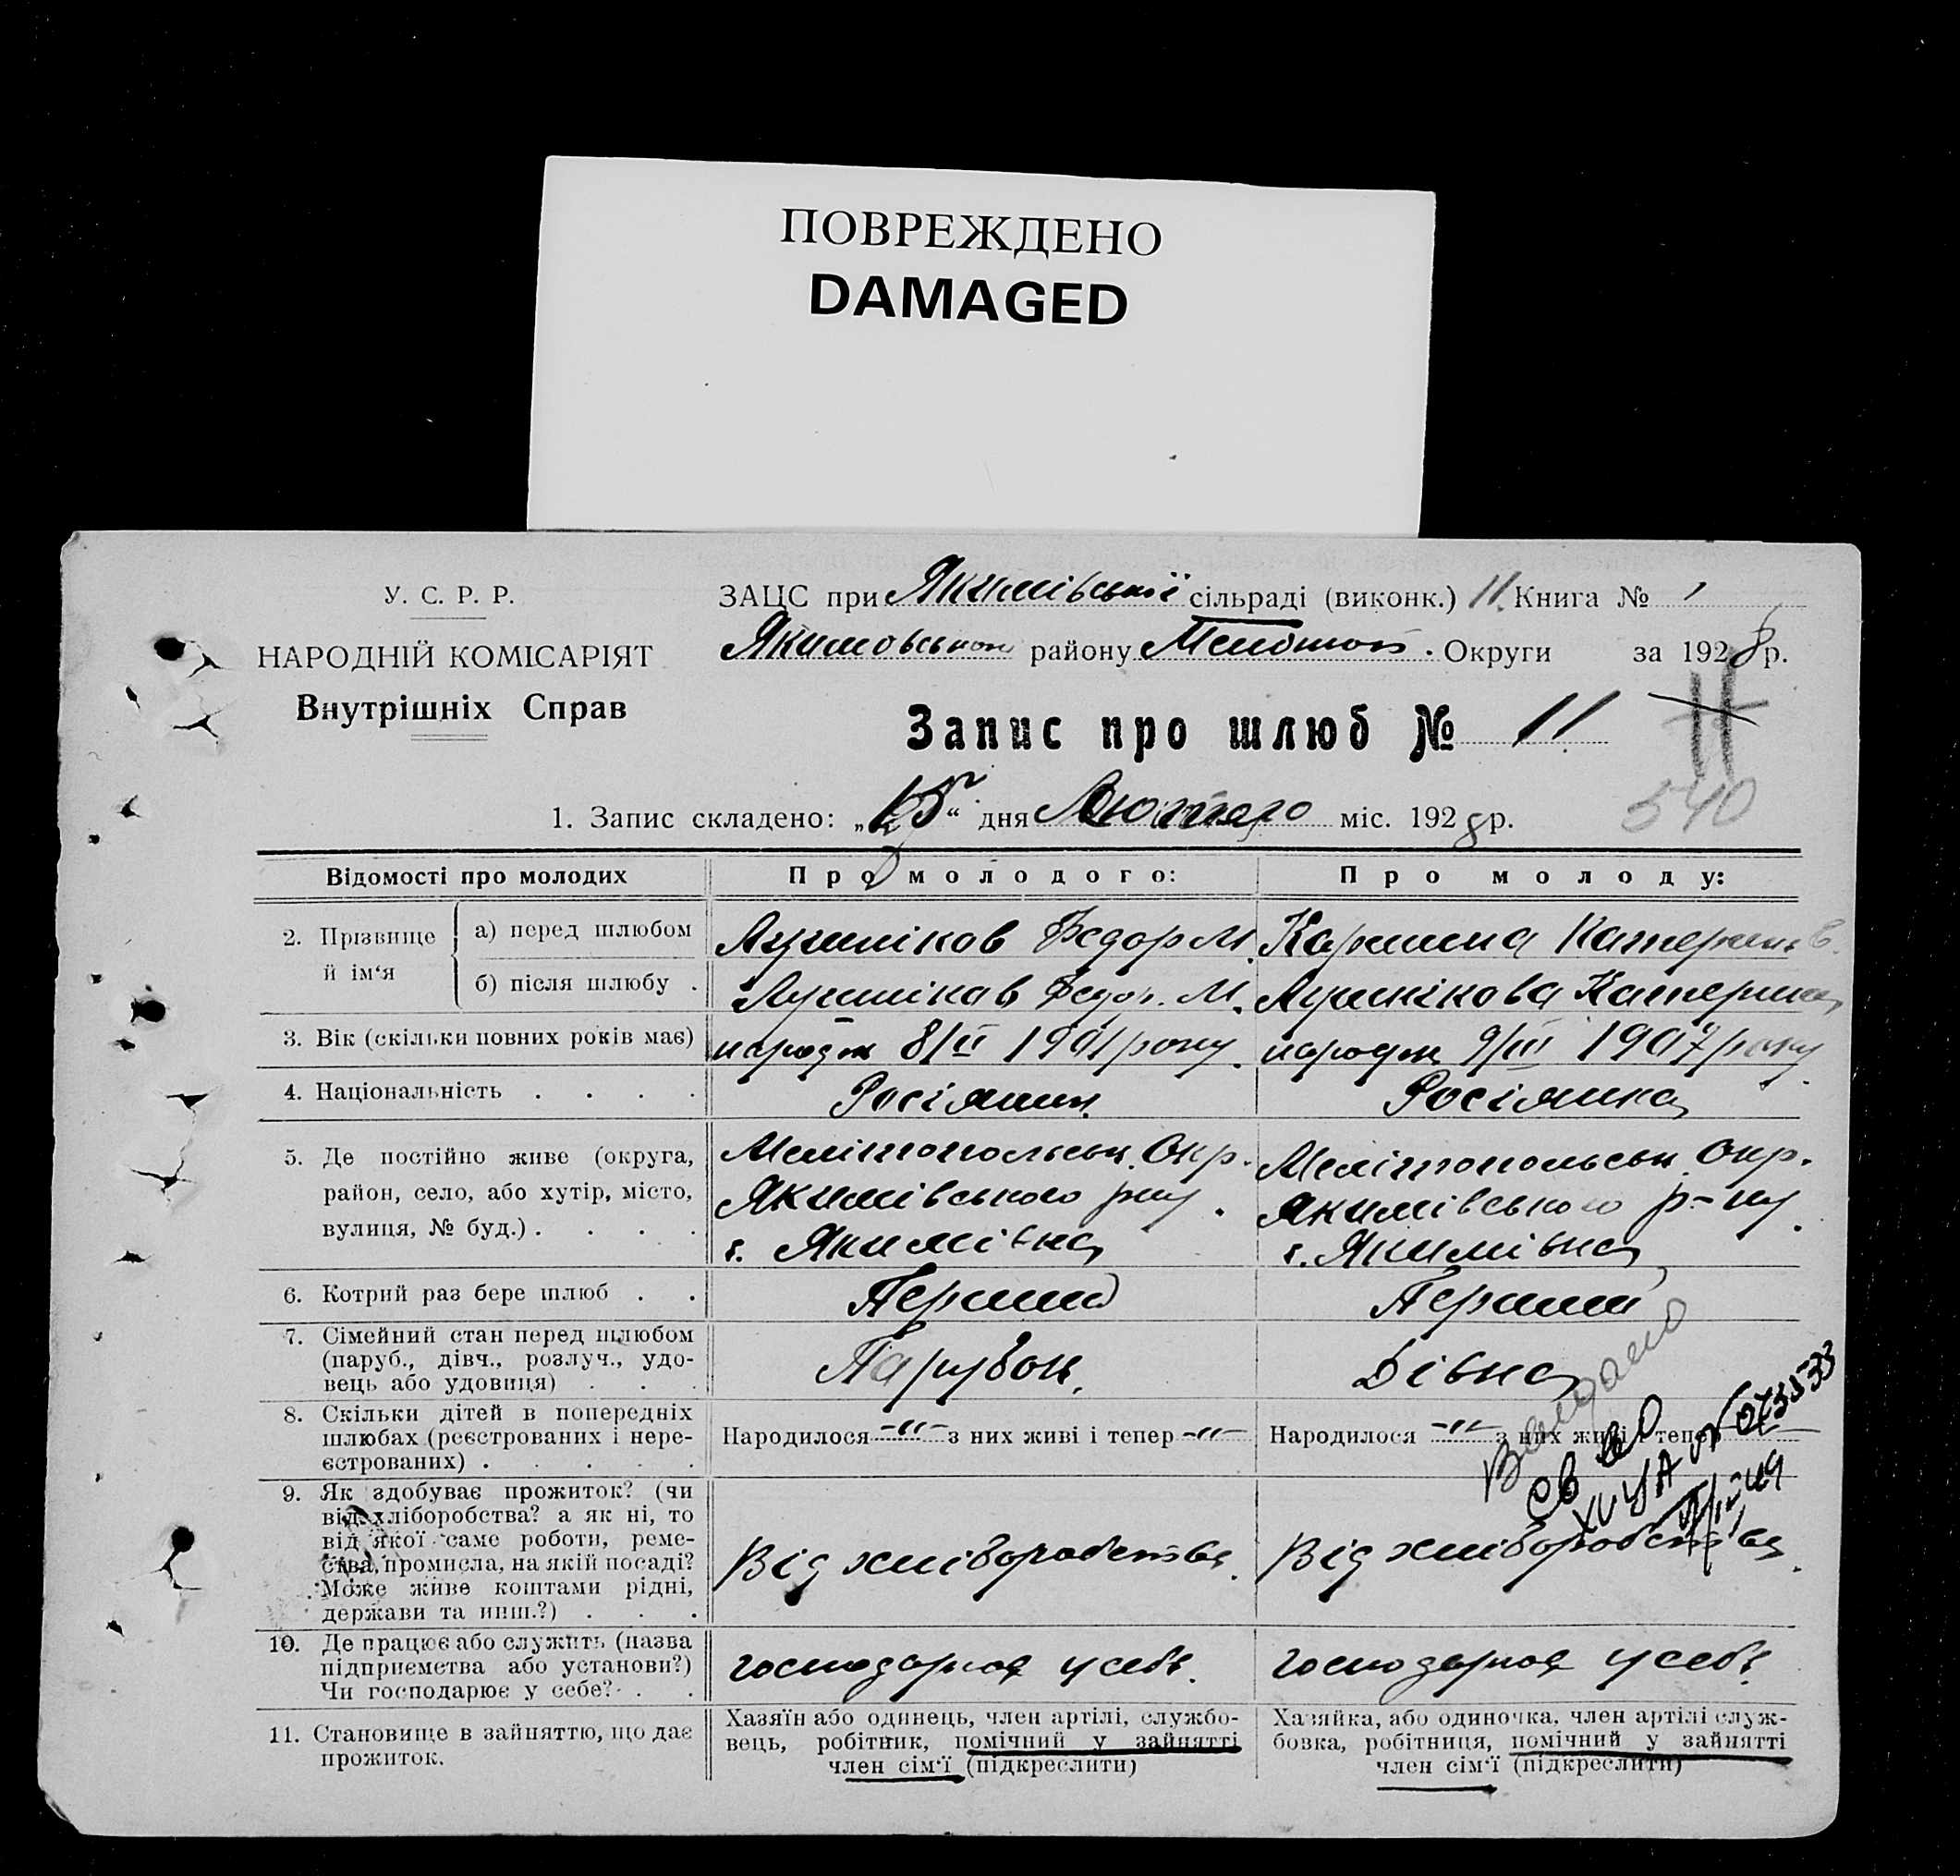 ПОВРЕЖДЕНО
DAMAGED
У. С. Р. Р.
НАРОДНІЙ КОМІСАРІЯТ
Внутрішніх Справ
ЗАЦС при Якимівській сільраді (виконк.) 11. Книга № 1
Якимовського району Мелітоп. Округи за 1928 р.
Запис про шлюб № 11
11
540
1. Запис складено: „15“ дня Лютого міс. 1928 р.
Відомості про молодих
Про молодого:
Про молоду:
2. Прізвище й ім‘я
а) перед шлюбом
Федор М.
Катерина
б) після шлюбу .
Федор. М.
Катерина
3. Вік (скільки повних років має)
народж 8/II 1901 року.
народж 9/III 1907 року.
4. Національність . . . .
Росіянин
Росіянка
5. Де постійно живе (округа,
район, село, або хутір, місто,
вулиця, № буд.) . . . .
Мелітопольськ. Окр.
Якимівського рну.
с. Якимівка
Мелітопольськ. Окр.
Якимівського р-ну.
с. Якимівка
6. Котрий раз бере шлюб . .
Перший
Перший
7. Сімейний стан перед шлюбом
(паруб., дівч., розлуч., удо-
вець або удовиця) . . .
Парубок.
Дівка
8. Скільки дітей в попередніх
шлюбах (реєстрованих і нере-
єстрованих) . . . . .
Народилося -"- з них живі і тепер -"-
Народилося -"- з них живі і тепер
9. Як здобуває прожиток? (чи
від хліборобства? а як ні, то
від якої саме роботи, реме-
ства, промисла, на якій посаді?
Може живе коштами рідні,
держави та инш.?) . . .
Від хліборобства.
Від хліборобства.
10. Де працює або служить (назва
підприємтва або установи?)
Чи господарює у себе? . .
господарює у себе.
господарює у себе.
11. Становище в зайняттю, що дає
прожиток.
Хазяїн або одинець, член артілі, службо-
вець, робітник, помічний у зайнятті
член сім‘ї (підкреслити)
Хазяйка, або одиночка, член артілі служ-
бовка, робітниця, помічний у зайнятті
член сім‘ї (підкреслити)